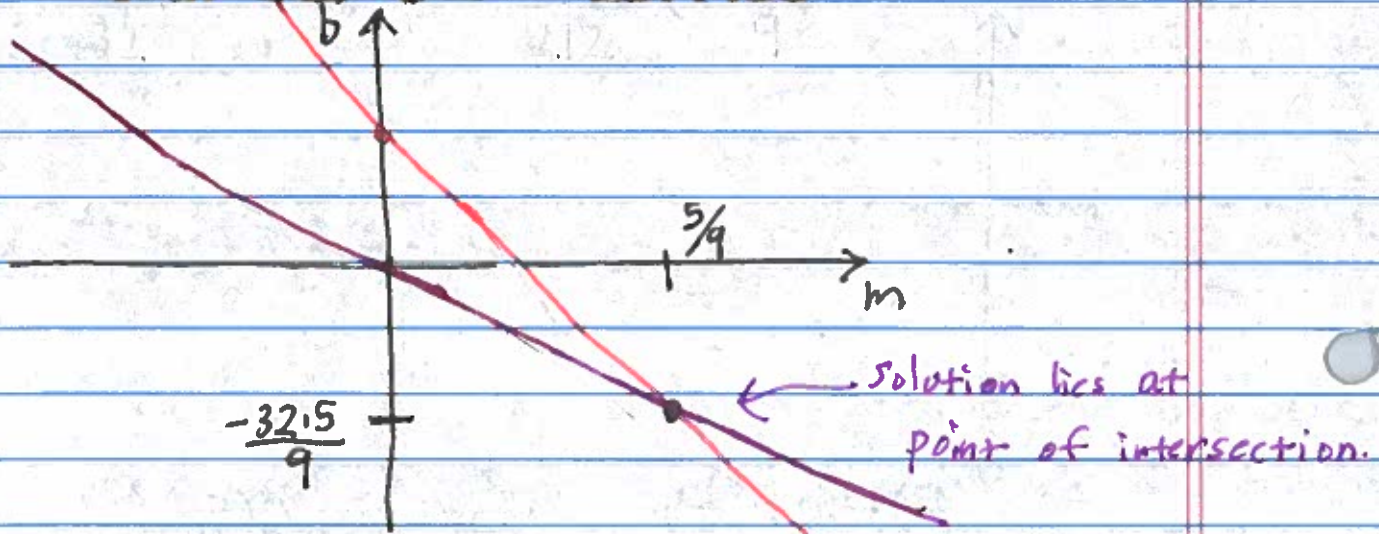 b
5/9
m
solution lies at
point of intersection.
-32·5
9